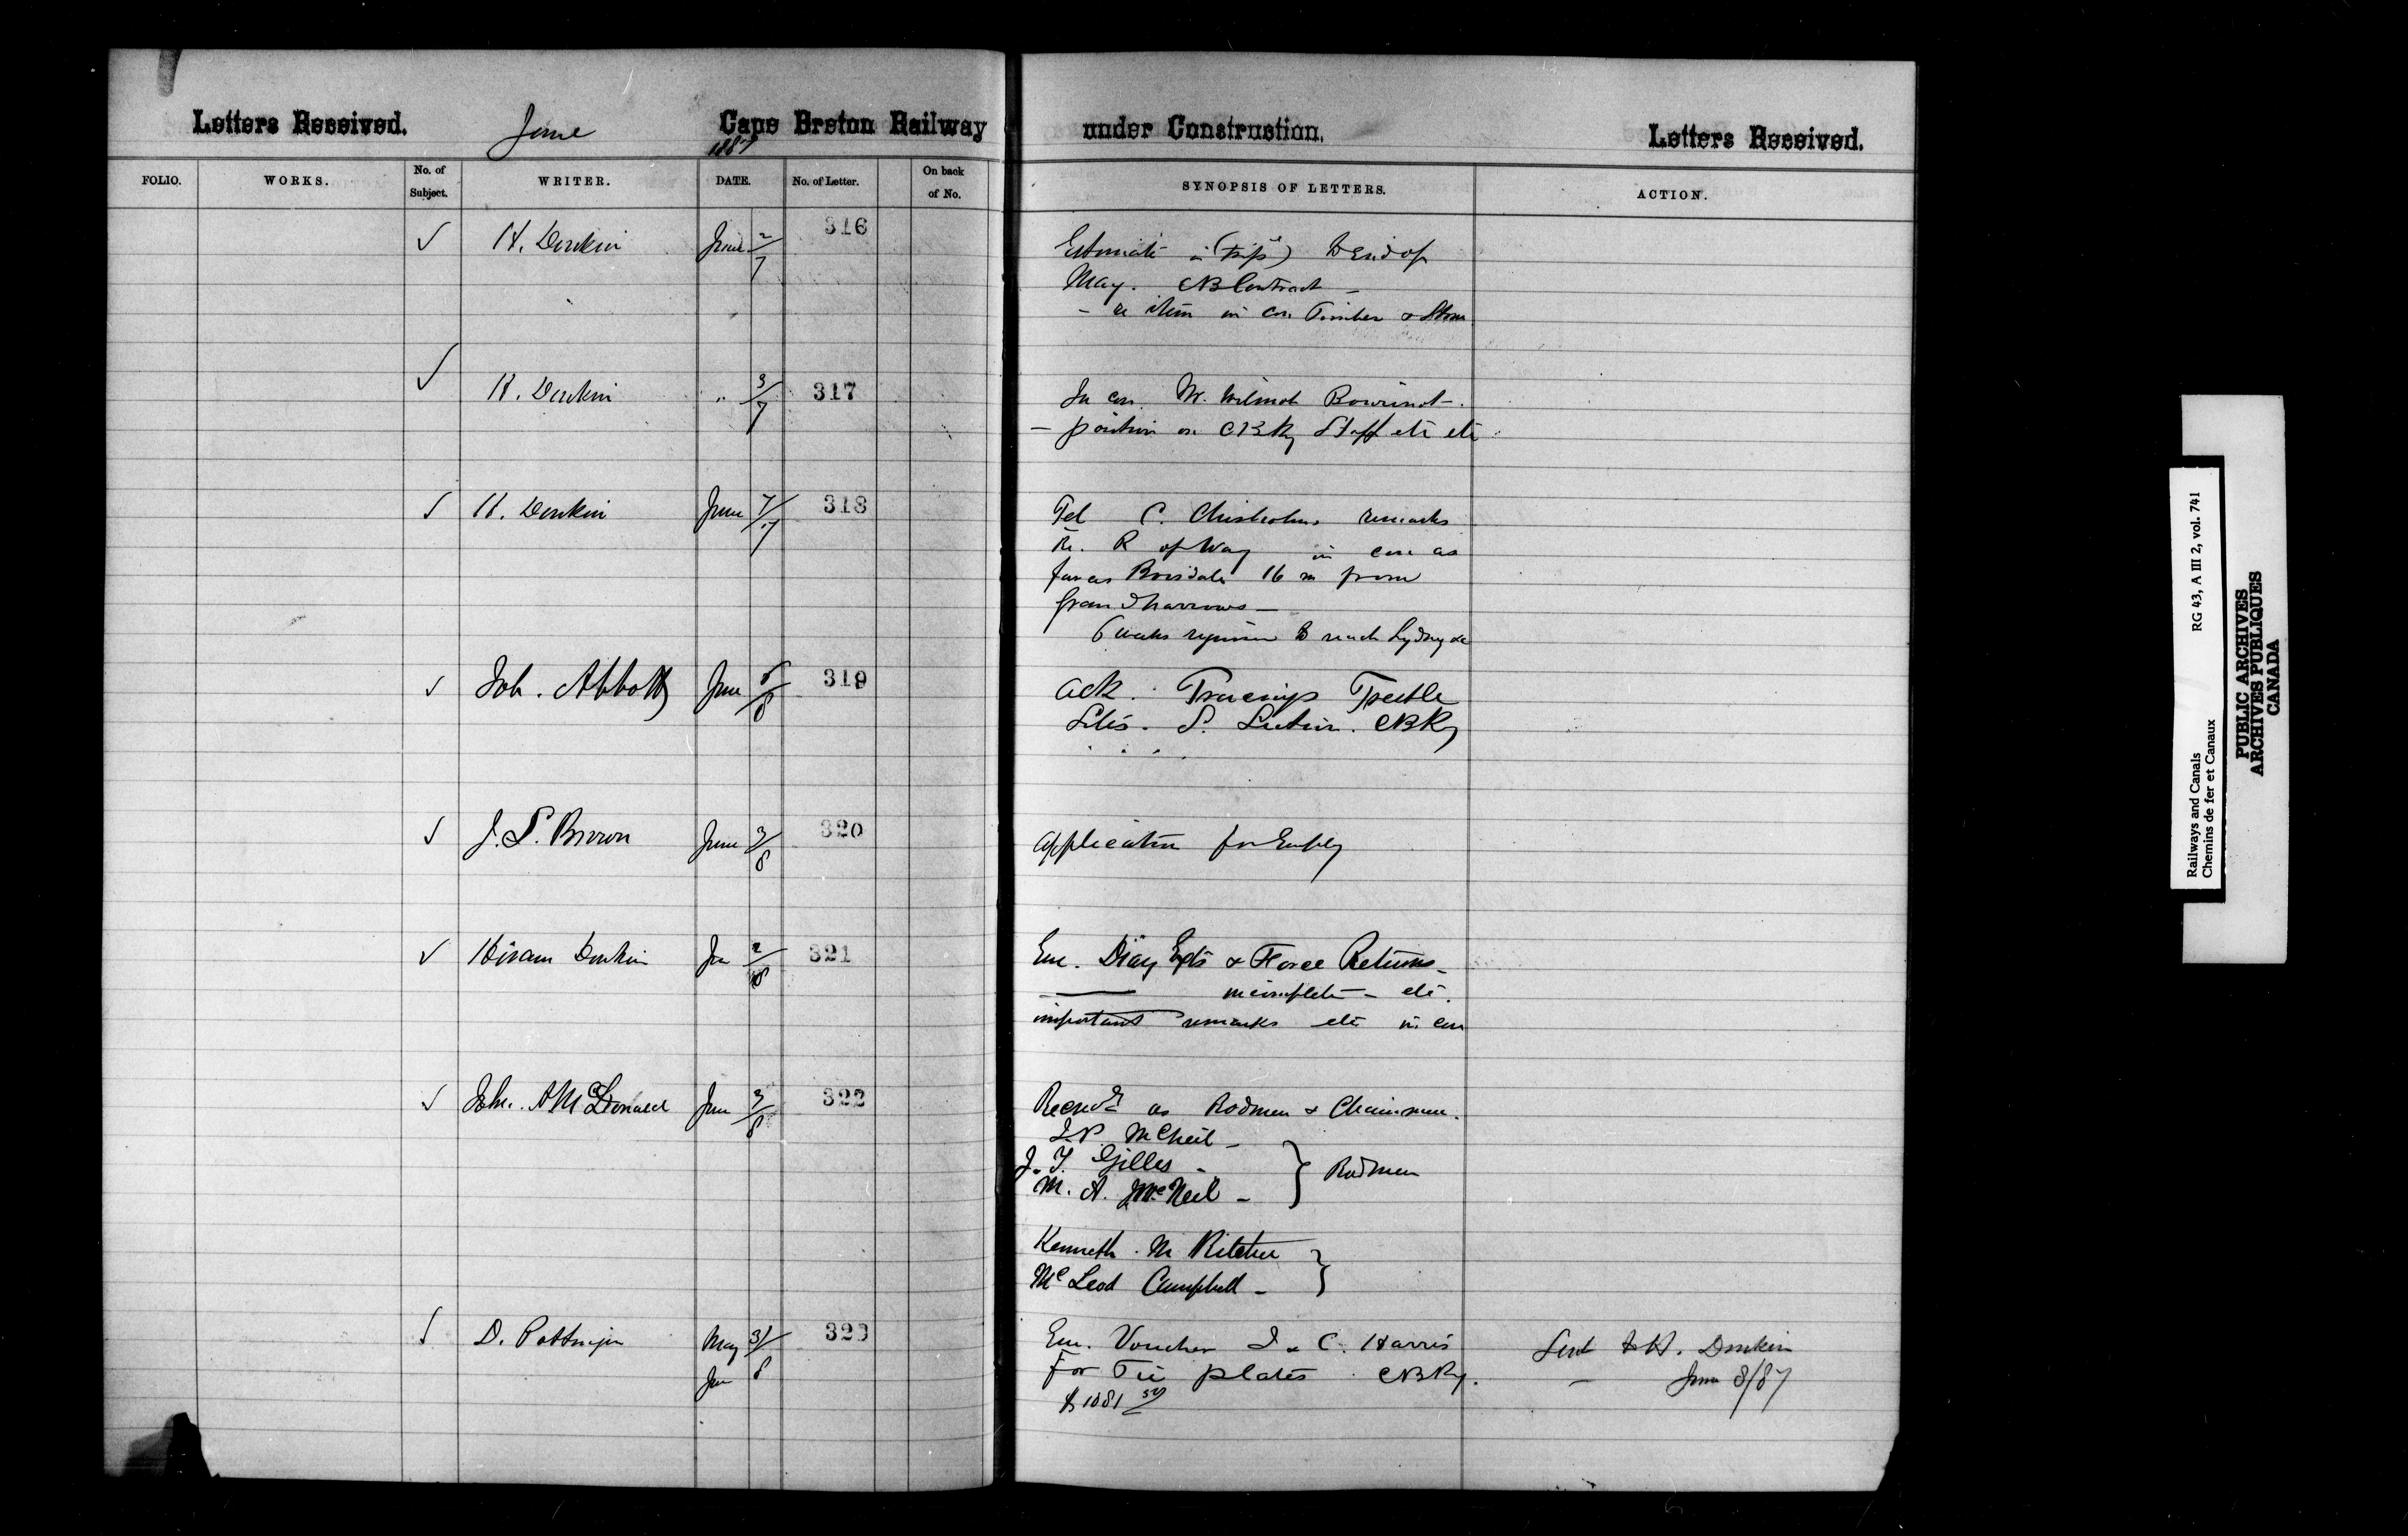 Letters Received. June Cape Breton Railway under Construction. Letters Received.
1887
FOLIO. WORKS. No. of Subject. WRITER. DATE. No. of Letter. On back of No. SYNOPSIS OF LETTERS. ACTION.
✓ H. Donkin June 2/7 316 Estimate in (trip) to End of
May. CB Contract —
- re item in con Timber &
✓ H. Donkin " 3/7 317 In con. Mr. Wilmot Bourinot -
- position on CBRy Staff etc etc
✓ H. Donkin June 7/7 318 Tel C. Chisholms remarks
Re. R of Way in con as
far as Boisdale 16 m from
Grand Narrows —
6 weeks required to reach Sydney &c
✓ Job. Abbott June 319 Ack. Tracings Trestle
Sites. S. Section. CBRy
✓ J. S. Brown June 3/8 320 Application for Emply
✓ Hiram Donkin Jun 2/8 321 Enc. Diary Expts & Force Returns -
incomplete - etc.
important remarks etc in con
✓ John. A McDonald Jun 3/8 322 Recmds as Rodmen & Chainmen.
McNeil -
J. F. Gilles -
M. A. McNeil - } Rodmen
Kenneth. M Ritchie
McLeod Campbell - }
✓ D. Pottinger May 31/ 323 Enc. Voucher I & C. Harris Sent to H. Donkin
Jun 8 For Tie plates CBRy. — June 8/87
$1081
Railways and Canals RG 43, A III 2, vol. 741
Chemins de fer et Canaux
PUBLIC ARCHIVES
ARCHIVES PUBLIQUES
CANADA